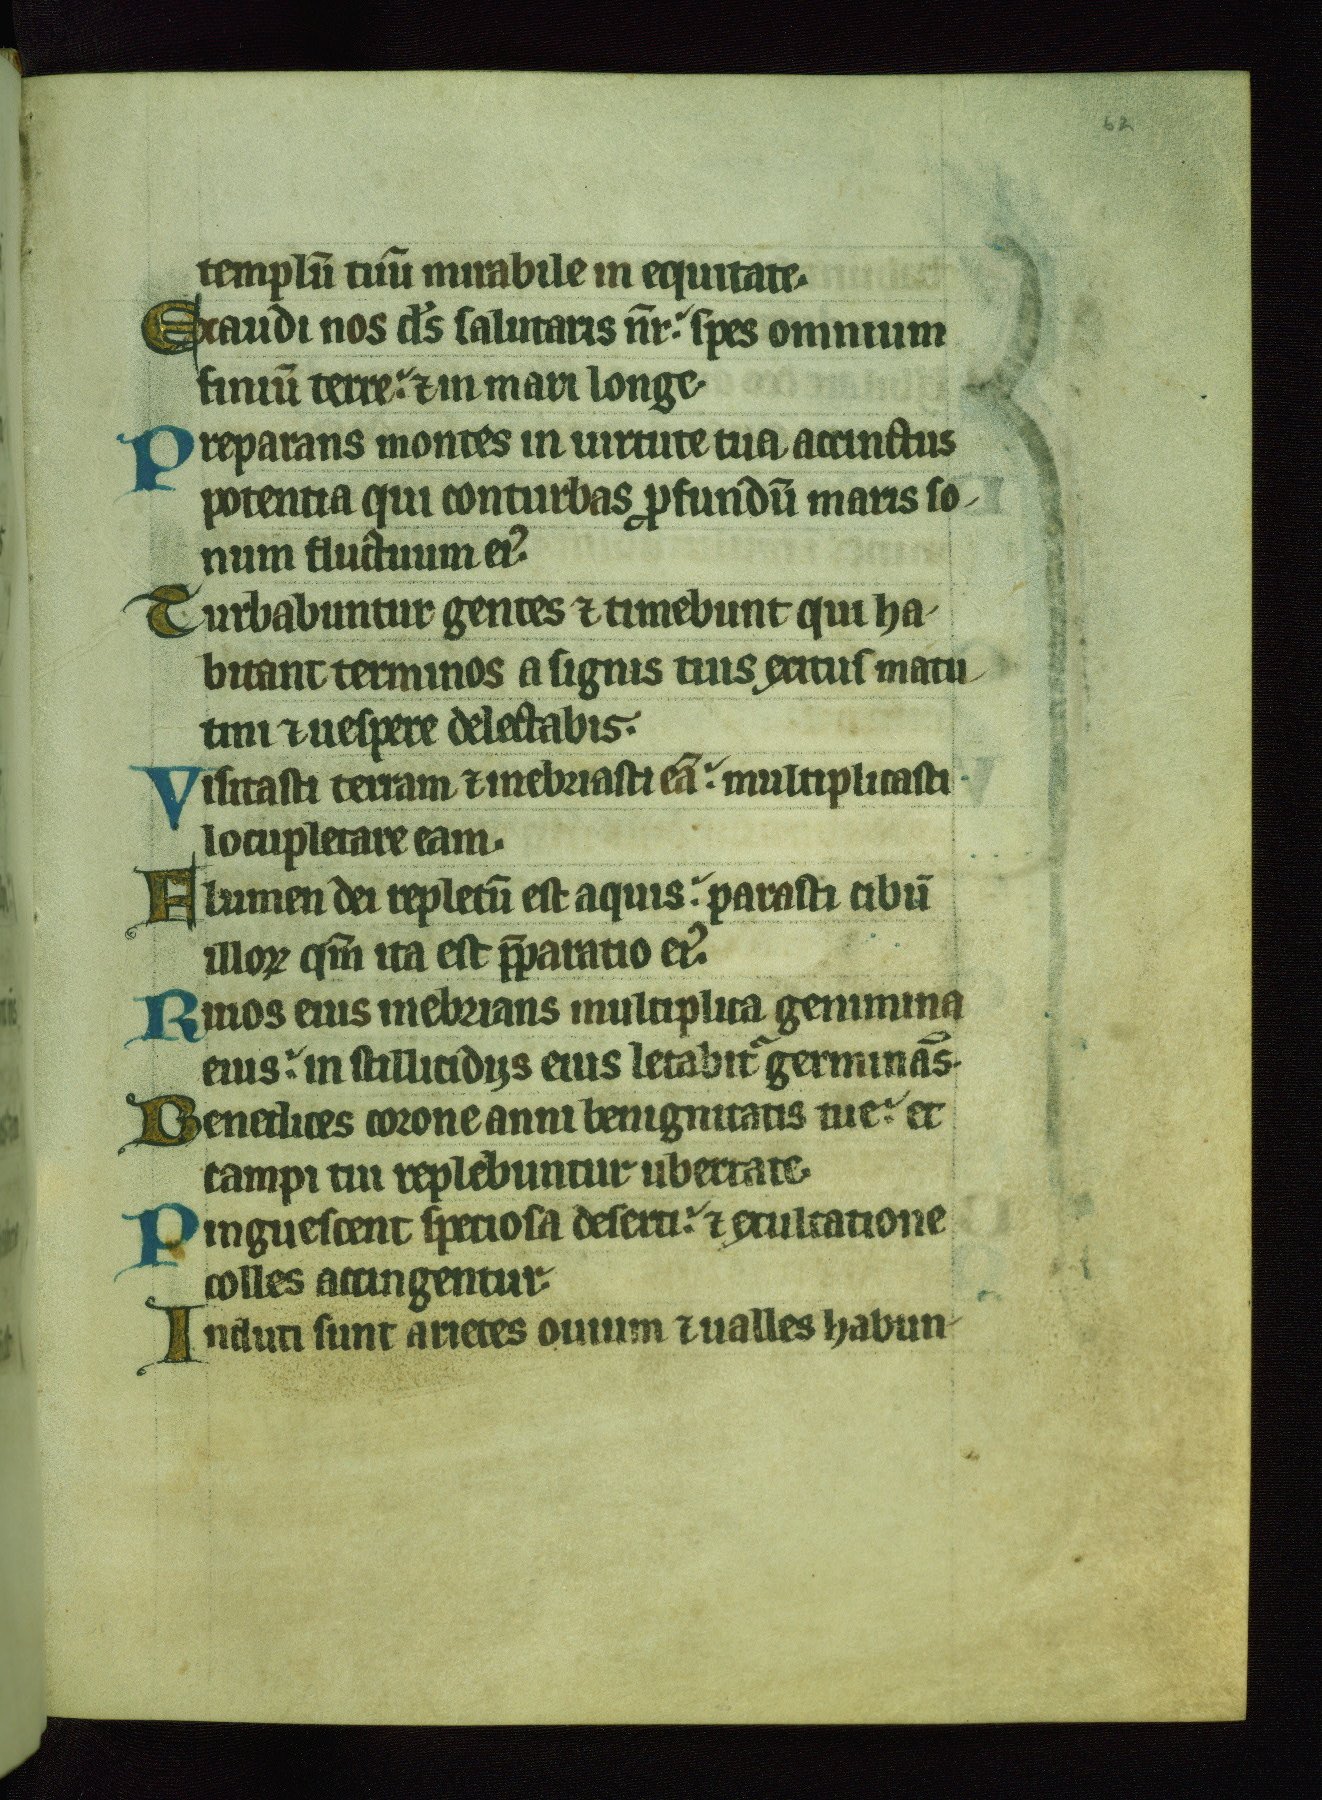 62
templū tuū mirabile in equitate.
Exaudi nos ds̄ salutaris nr̄: spes omnium
finiū terre: ⁊ in mari longe.
Preparans montes in uirtute tua accinctus
potentia qui conturbas ꝓfundū maris so-
num fluctuum eiꝰ.
Turbabuntur gentes ⁊ timebunt qui ha-
bitant terminos a signis tuis exitus matu-
tini ⁊ uespere delectabis.
Visitasti terram ⁊ inebriasti eā: multiplicasti
locupletare eam.
Flumen dei repletū est aquis: parasti cibū
illoꝝ qm̄ ita est p̄paratio eiꝰ.
Riuos eius inebrians multiplica genimina
eius: in stillicidijs eius letabit᷑ germinās.
Benedices corone anni benignitatis tue: et
campi tui replebuntur ubertate.
Pinguescent speciosa deserti: ⁊ exultatione
colles accingentur.
Induti sunt arietes ouium ⁊ ualles habun-